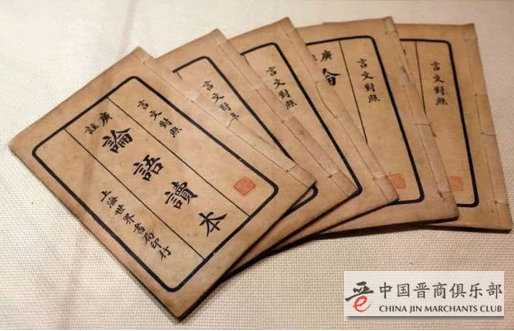 言文對照
廣註
論語讀本
上海世界書局印行
言文對照
言文對照
言文對照
廣
言文對照
中国晋商俱乐部
CHINA JIN MERCHANTS CLUB